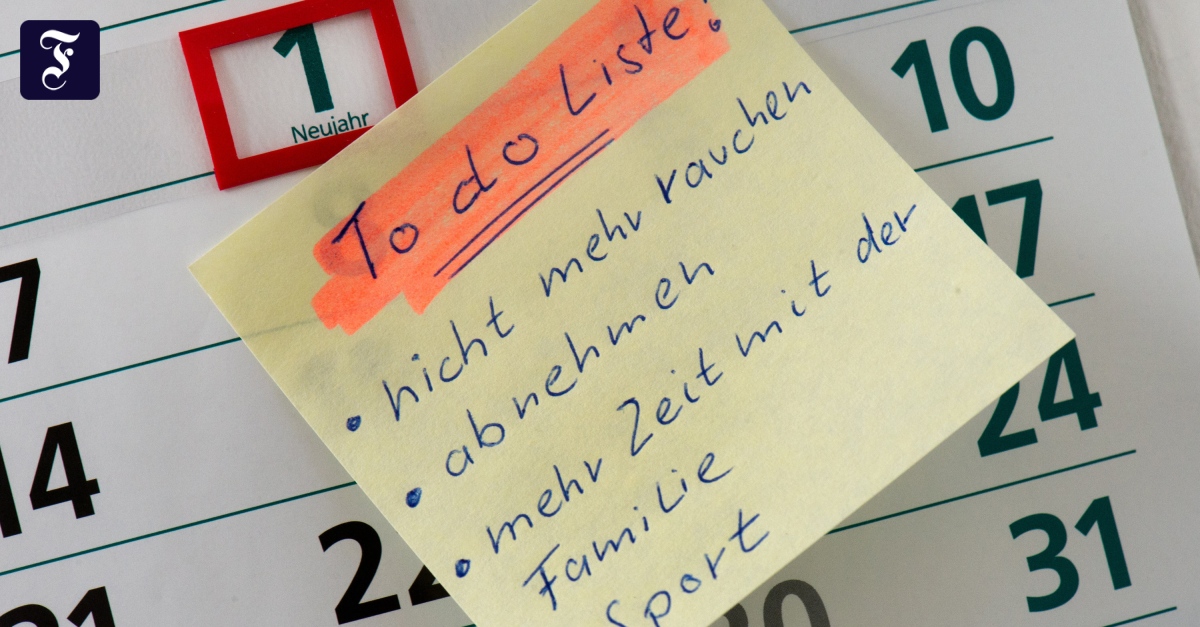 F
1
Neujahr
10
7
17
14
24
22
31
21
30
To do Liste!
• nicht mehr rauchen
• abnehmen
• mehr Zeit mit der
Familie
Sport